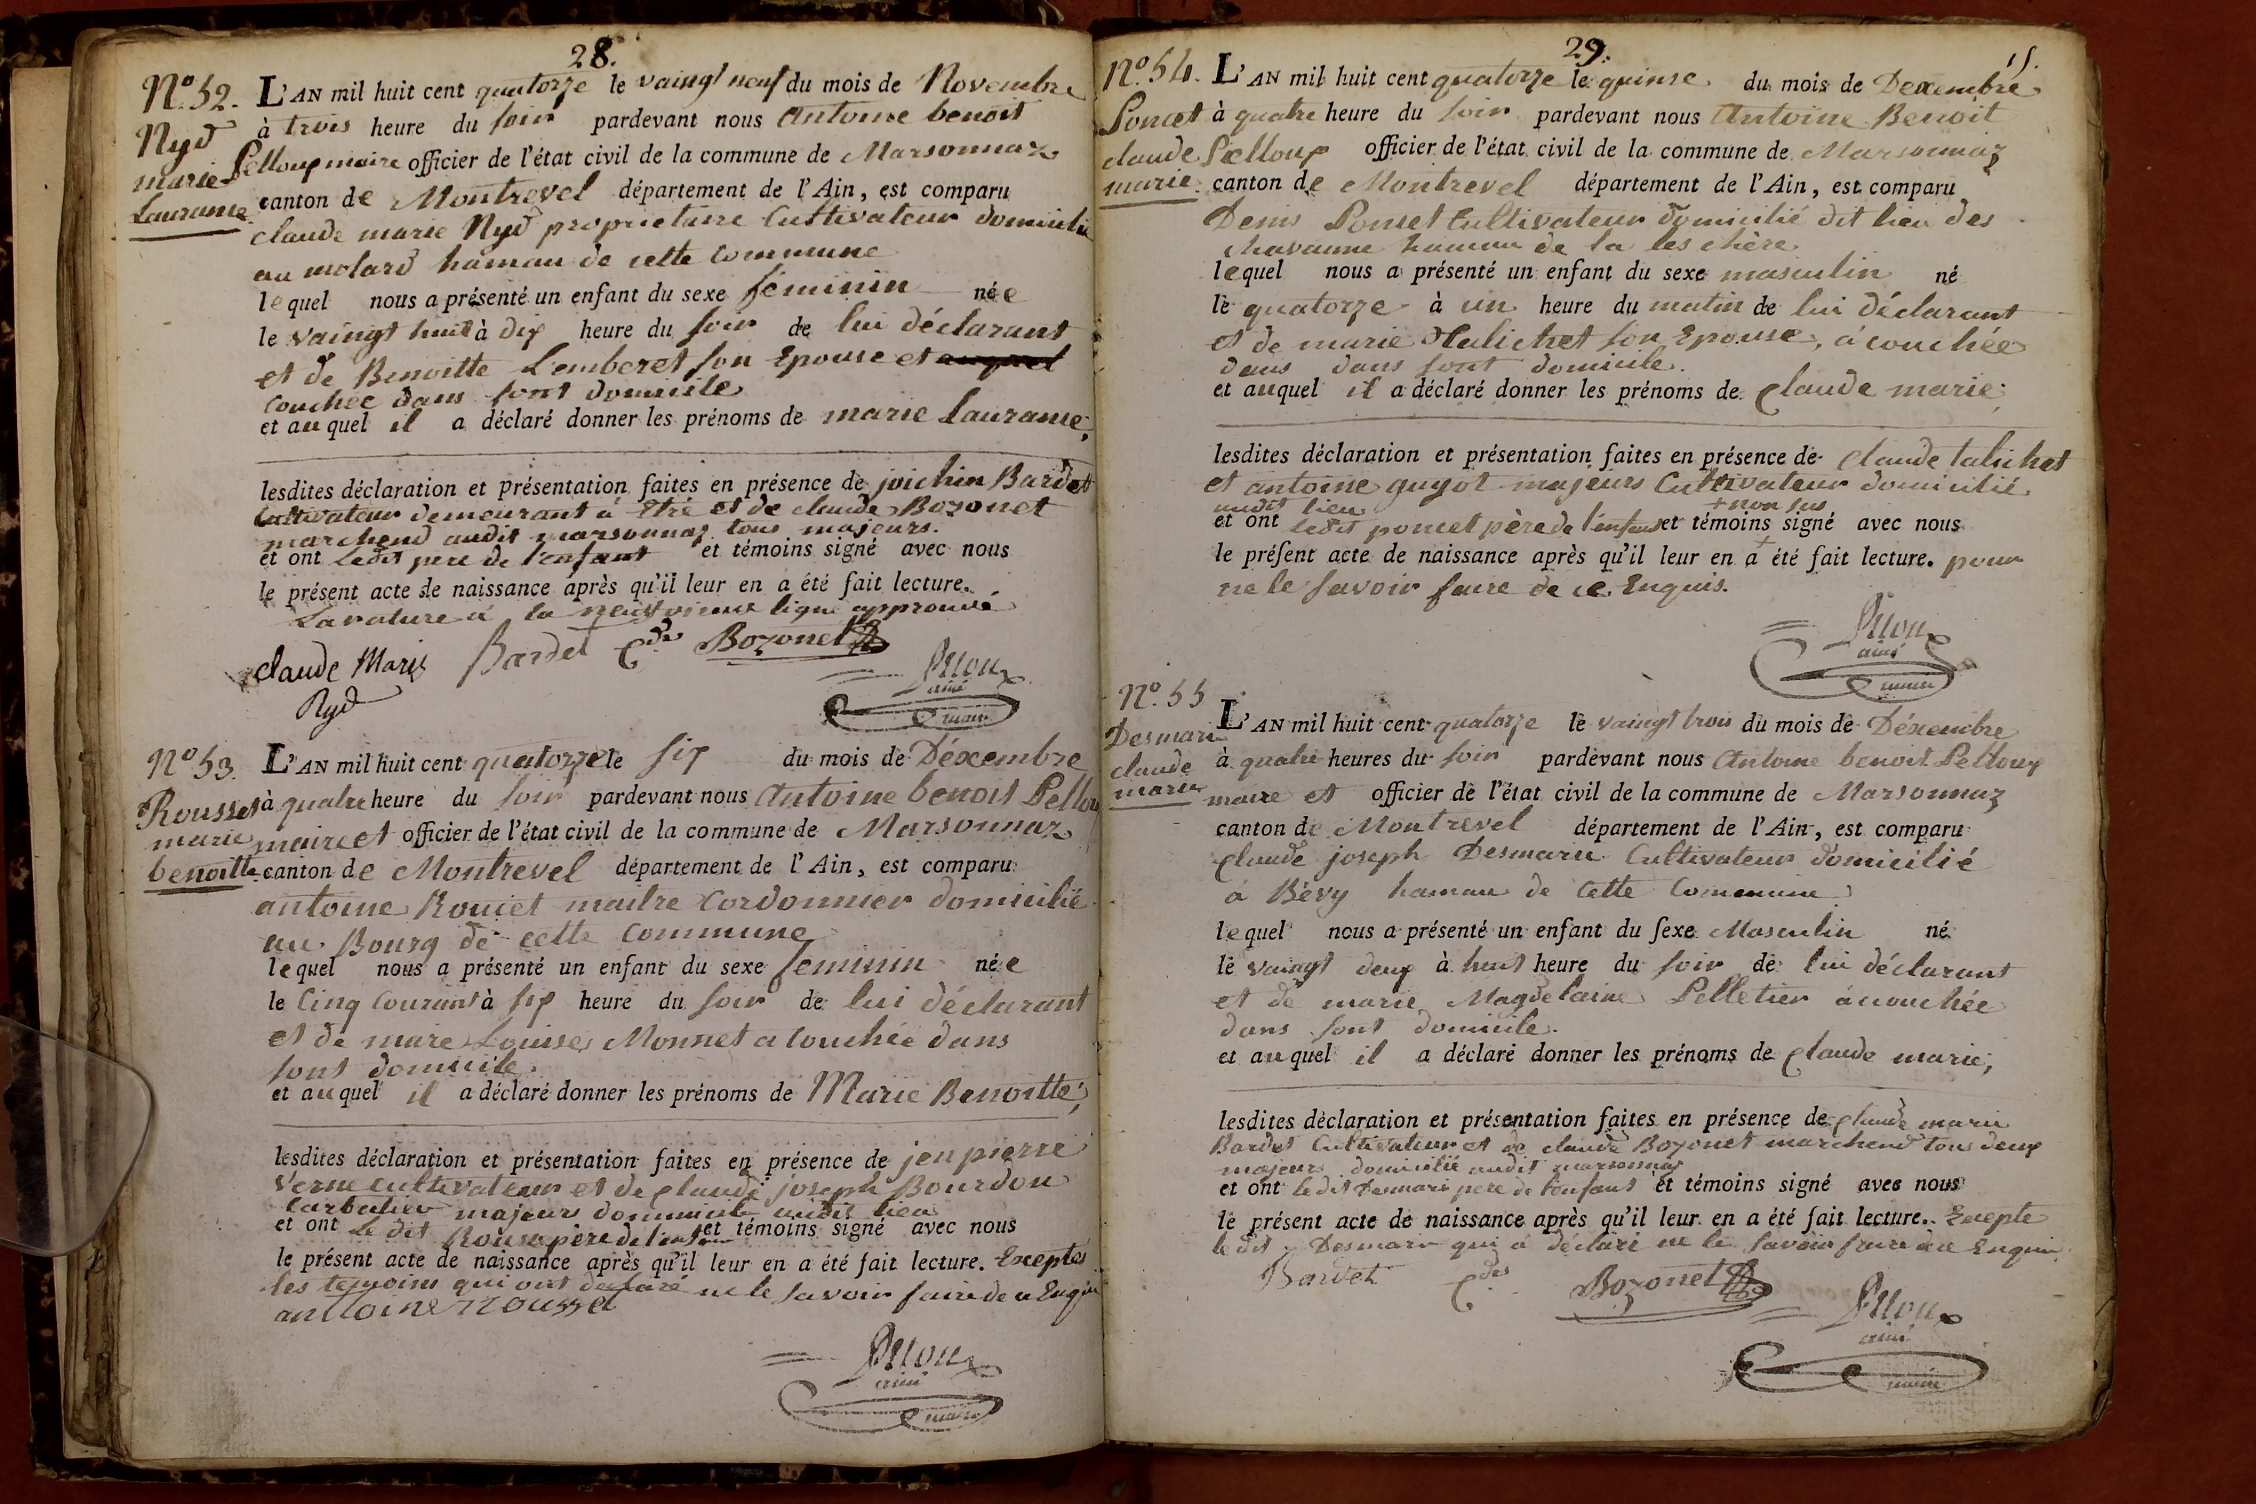 28.
N.º 52.
Nyd
marie
Lauranne
L'AN mil huit cent quatorze le vaingt neuf du mois de Novembre
à trois heure du soir pardevant nous Antoine benoit
Pelloux maire officier de l'état civil de la commune de Marsonnaz
canton de Montrevel département de l'Ain, est comparu
claude marie Nyd proprietaire Cultivateur domicilié
au molard hamau de cette commune
lequel nous a présenté un enfant du sexe féminin née
le vaingt huit à dix heure du soir de lui déclarant
et de Benoitte Lemberet son Epouse et auquel
couchée dans sont domicile
et auquel il a déclaré donner les prénoms de marie Lauranne,
lesdites déclaration et présentation faites en présence de joichin Bardet
Cultivateur demeurant à Etré et de claude Bozonet
marchend audit marsonnaz tous majeurs.
et ont ledit pere de l'enfant et témoins signé avec nous
le présent acte de naissance après qu'il leur en a été fait lecture.
La rature à la neuvoieme ligne approuvé
claude Marie Bardet Cde Bozonet
Nyd
Pelloux
ainé
maire
N.º 53.
Rousset
marie
benoitte
L'AN mil huit cent quatorze le six du mois de Déxembre
à quatre heure du soir pardevant nous Antoine benoit Pelloux
maire et officier de l'état civil de la commune de Marsonnaz
canton de Montrevel département de l'Ain, est comparu
antoine Roucet maitre Cordonnier domicilié
au Bourg de cette Commune
lequel nous a présenté un enfant du sexe feminin née
le Cinq Courant à six heure du soir de lui déclarant
et de marie Louise Monnet a couchée dans
sont domicile.
et auquel il a déclaré donner les prénoms de Marie Benoitte,
lesdites déclaration et présentation faites en présence de jen pierre
Verne cultivateur et de claude joseph Bourdon
Carbatier majeurs domicilié audit lieu
et ont le dit Rousset père de l'enfant et témoins signé avec nous
le présent acte de naissance après qu'il leur en a été fait lecture. Exeptés
les temoins qui ont déclaré ne le savoir faire de ce Enquis
antoine rousset
Pelloux
ainé
maire
29.
15.
N.º 54.
Poncet
claude
marie
L'AN mil huit cent quatorze le quinse du mois de Dexembre
à quatre heure du soir pardevant nous Antoine Benoit
Pelloux officier de l'état civil de la commune de Marsonnaz
canton de Montrevel département de l'Ain, est comparu
Denis Ponset Cultivateur domicilié dit lieu des
chavanne hamau de la leschère
lequel nous a présenté un enfant du sexe masculin né
le quatorze à un heure du matin de lui déclarant
et de marie Talichet son Epouse, à couchée
dans dans sont domicile.
et auquel il a déclaré donner les prénoms de Claude marie;
lesdites déclaration et présentation faites en présence de Claude talichet
et antoine guyot majeurs Cultivateur domicilié
audit lieu + non sus
et ont ledit poncet père de l'enfant et témoins signé avec nous
le présent acte de naissance après qu'il leur en a + été fait lecture. pour
ne le savoir faire de ce Enquis.
Pelloux
ainé
maire
N.º 55
Desmari
claude
marie
L'AN mil huit cent quatorze le vaingt trois du mois de Déxembre
à quatre heures du soir pardevant nous Antoine benoit Pelloux
maire et officier de l'état civil de la commune de Marsonnaz
canton de Montrevel département de l'Ain, est comparu
Claude joseph Desmarie Cultivateur domicilié
à Bévy hamau de cette Commune
lequel nous a présenté un enfant du sexe Masculin né
le vaingt deux à huit heure du soir de lui déclarant
et de marie Magdelaine Pelletier acouchée
dans sont domicile.
et auquel il a déclaré donner les prénoms de Claude marie;
lesdites déclaration et présentation faites en présence de Claude marie
Bardet Cultivateur et de claude Bozonet marchend tous deux
majeurs domicilié audit marsonnaz
et ont ledit Desmari pere de l'enfant et témoins signé avec nous
le présent acte de naissance après qu'il leur en a été fait lecture. Exepte
le dit Desmari qui à déclaré ne le savoir faire de ce Enquis
Bardet Cde Bozonet
Pelloux
ainé
maire